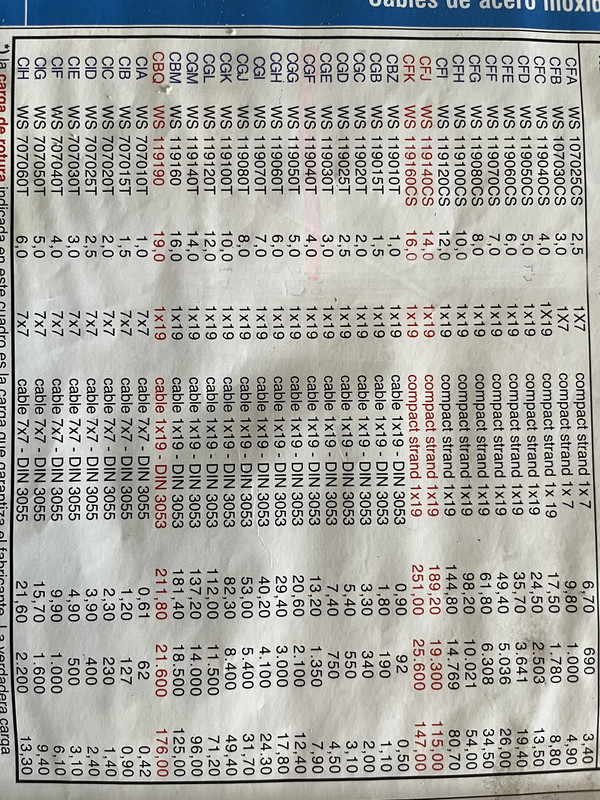 Cables de acero
CFA WS 107025CS 2,5 1X7 compact strand 1x 7 6,70 690 3,40
CFB WS 107030CS 3,0 1X7 compact strand 1x 7 9,80 1.000 4,90
CFC WS 119040CS 4,0 1X19 compact strand 1x 19 17,50 1.780 8,80
CFD WS 119050CS 5,0 1x19 compact strand 1x19 24,50 2.503 13,50
CFE WS 119060CS 6,0 1x19 compact strand 1x19 35,70 3.641 19,40
CFF WS 119070CS 7,0 1x19 compact strand 1x19 49,40 5.036 26,00
CFG WS 119080CS 8,0 1x19 compact strand 1x19 61,80 6.308 34,50
CFH WS 119100CS 10,0 1x19 compact strand 1x19 98,20 10.021 54,00
CFI WS 119120CS 12,0 1x19 compact strand 1x19 144,80 14.769 80,70
CFJ WS 119140CS 14,0 1x19 compact strand 1x19 189,20 19.300 115,00
CFK WS 119160CS 16,0 1x19 compact strand 1x19 251,00 25.600 147,00
CBZ WS 119010T 1,0 1x19 cable 1x19 - DIN 3053 0,90 92 0,50
CGB WS 119015T 1,5 1x19 cable 1x19 - DIN 3053 1,80 190 1,10
CGC WS 119020T 2,0 1x19 cable 1x19 - DIN 3053 3,30 340 2,00
CGD WS 119025T 2,5 1x19 cable 1x19 - DIN 3053 5,40 550 3,10
CGE WS 119030T 3,0 1x19 cable 1x19 - DIN 3053 7,40 750 4,50
CGF WS 119040T 4,0 1x19 cable 1x19 - DIN 3053 13,20 1.350 7,90
CGG WS 119050T 5,0 1x19 cable 1x19 - DIN 3053 20,60 2.100 12,40
CGH WS 119060T 6,0 1x19 cable 1x19 - DIN 3053 29,40 3.000 17,80
CGI WS 119070T 7,0 1x19 cable 1x19 - DIN 3053 40,20 4.100 24,30
CGJ WS 119080T 8,0 1x19 cable 1x19 - DIN 3053 53,00 5.400 31,70
CGK WS 119100T 10,0 1x19 cable 1x19 - DIN 3053 82,30 8.400 49,40
CGL WS 119120T 12,0 1x19 cable 1x19 - DIN 3053 112,00 11.500 71,20
CGM WS 119140T 14,0 1x19 cable 1x19 - DIN 3053 137,20 14.000 96,00
CBM WS 119160 16,0 1x19 cable 1x19 - DIN 3053 181,40 18.500 125,00
CBQ WS 119190 19,0 1x19 cable 1x19 - DIN 3053 211,80 21.600 176,00
CIA WS 707010T 1,0 7x7 cable 7X7 - DIN 3055 0,61 62 0,42
CIB WS 707015T 1,5 7x7 cable 7X7 - DIN 3055 1,20 127 0,90
CIC WS 707020T 2,0 7x7 cable 7X7 - DIN 3055 2,30 230 1,40
CID WS 707025T 2,5 7x7 cable 7X7 - DIN 3055 3,90 400 2,40
CIE WS 707030T 3,0 7x7 cable 7X7 - DIN 3055 4,90 500 3,10
CIF WS 707040T 4,0 7x7 cable 7X7 - DIN 3055 9,90 1.000 6,10
CIG WS 707050T 5,0 7x7 cable 7X7 - DIN 3055 15,70 1.600 9,40
CIH WS 707060T 6,0 7x7 cable 7X7 - DIN 3055 21,60 2.200 13,30
*) la carga de rotura indicada en este cuadro es la carga que garantiza el fabricante. La verdadera carga